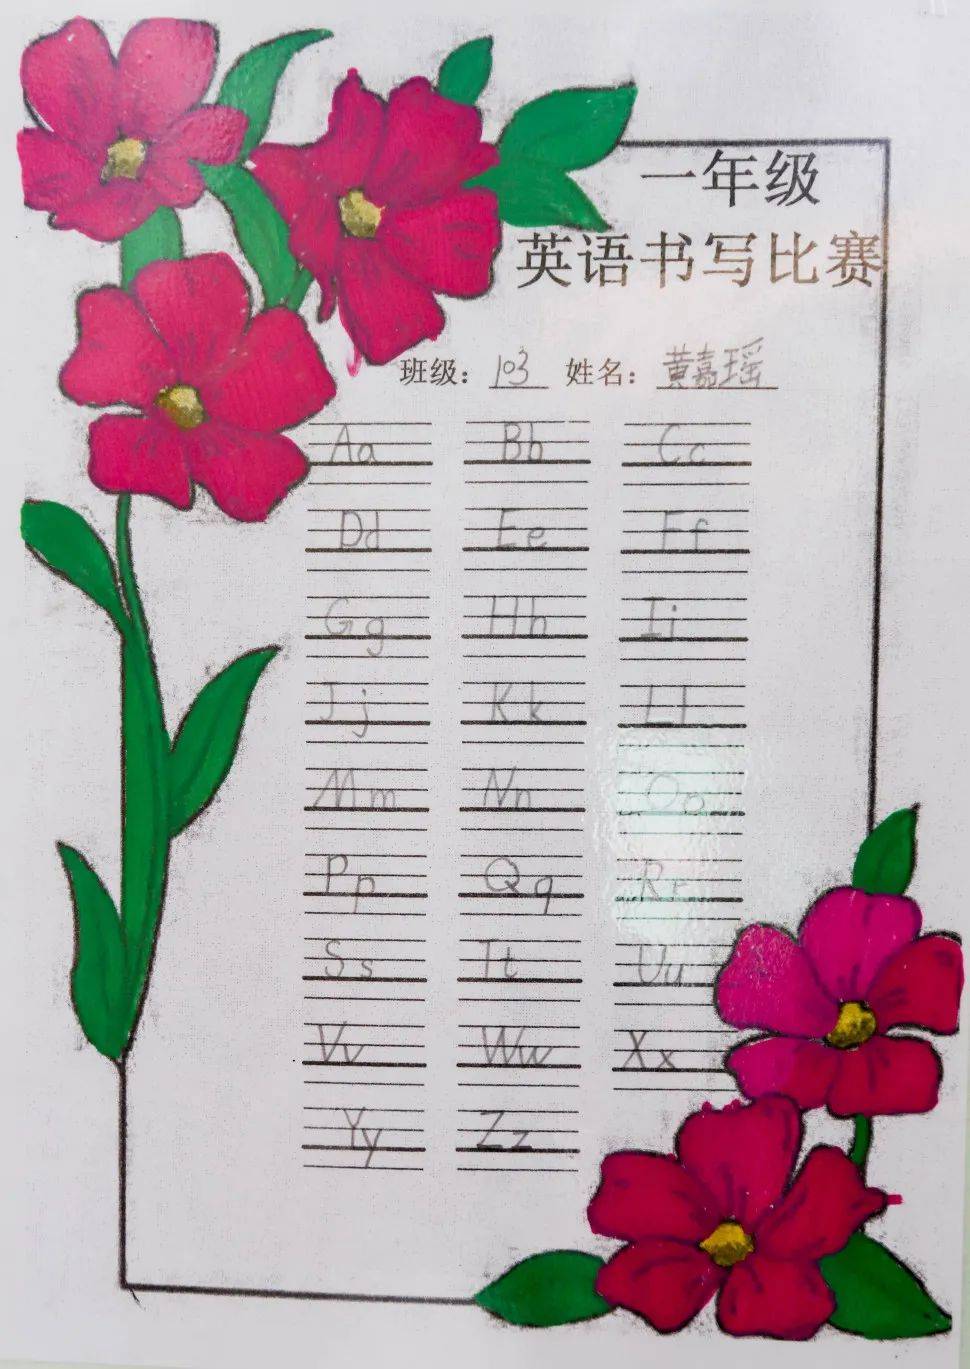 一年级
英语书写比赛
班级: 103 姓名: 黄嘉瑶
Aa Bb Cc
Dd Ee Ff
Gg Hh Ii
Jj Kk Ll
Mm Nn Oo
Pp Qq Rr
Ss Tt Uu
Vv Ww Xx
Yy Zz